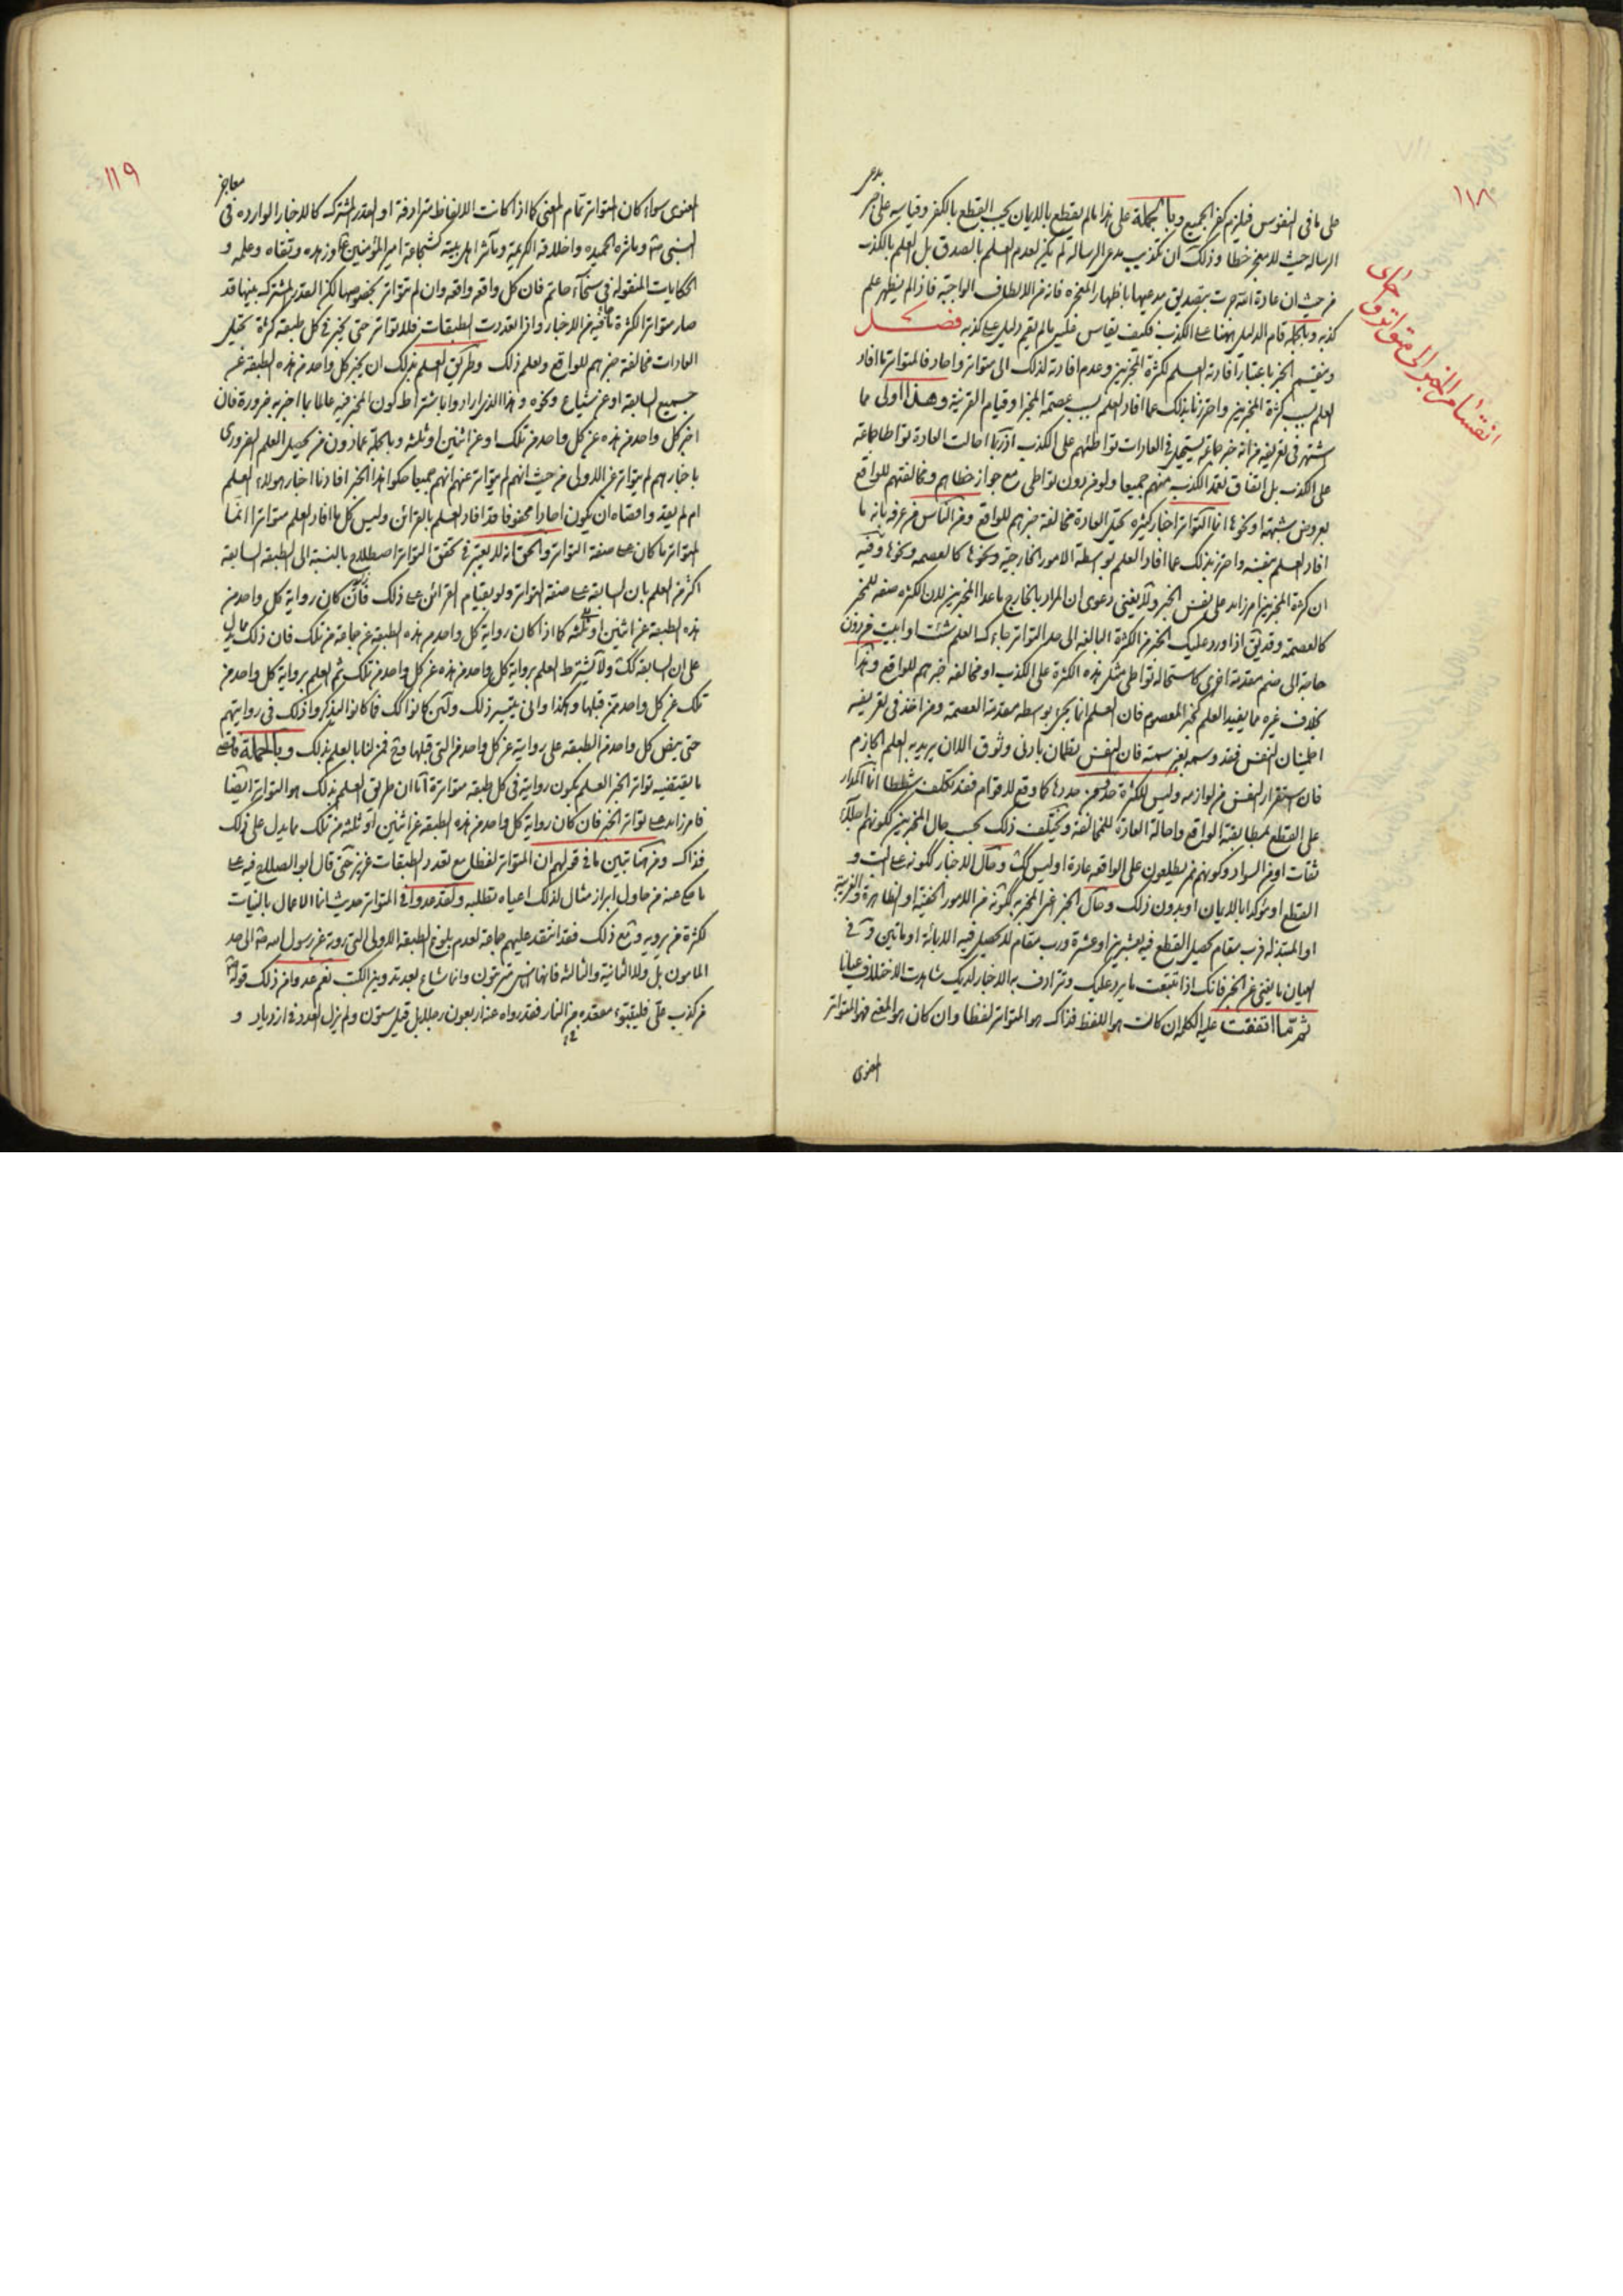 ١١٨
انقسام الخبر الى متواتر و احاد
على ما فى النفوس فيلزم كفر الجميع وبالجملة على هذا ما لم يقطع بالاديان يجب القطع بالكفر وقياسه على خبر مدعى
الرسالة حيث لا معجز خطا وذلك ان تكذيب مدعى الرسالة لم يكن لعدم العلم بالصدق بل للعلم بالكذب
من حيث ان عادة الله جرت بتصديق مدعيها باظهار المعجزة فانه من الالطاف الواجبة فاذا لم يظهر علم
كذبه وبالجملة قام الدليل ههنا على الكذب فكيف يقاس عليه ما لم يقم دليل على كذبه فصل
وينقسم الخبر باعتبار افادته العلم لكثرة المخبرين وعدم افادته لذلك الى متواتر واحاد فالمتواتر ما افاد
العلم بسبب كثرة المخبرين واحترزنا بذلك عما افاد العلم بسبب عصمة المخبر او قيام القرينة وهذا اولى مما
اشتهر فى تعريفه من انه خبر جماعة يستحيل فى العادات تواطئهم على الكذب اذ ربما احالت العادة تواطا جماعة
على الكذب بل اتفاق تعمد الكذب منهم جميعا ولو من دون تواطى مع جواز خطاهم ومخالفتهم للواقع
بعروض شبهة او نحوها انما التواتر اخبار كثيرة تحيل العادة مخالفة خبرهم للواقع ومن الناس من عرفه بانه ما
افاد العلم بنفسه واحترز بذلك عما افاد العلم بوسطة الامور الخارجية ونحوها كالعصمة ونحوها وفيه
ان كثرة المخبرين امر زايد على نفس الخبر ولا يغنى دعوى ان المراد بالخارج ما عدا المخبرين لان الكثرة صفة للمخبر
كالعصمة وقد يق اذا ورد عليك الخبر من الكثرة البالغة الى حد التواتر جاءك العلم شئت او ابيت من دون
حاجة الى ضم مقدمة اخرى كاستحالة تواطى مثل هذه الكثرة على الكذب او مخالفة خبرهم للواقع وهذا
بخلاف غيره مما يفيد العلم كخبر المعصوم فان العلم انما يجئ بوسطة مقدمة العصمة ومن اخذ فى تعريفه
اطمينان النفس فقد وسمه بغير سمته فان النفس تطمان بادنى وثوق الا ان يريد به العلم الجازم
فان استقرار النفس من لوازمه وليس للكثرة حد فمن حددها كما وقع لاقوام فقد تكلف شططا انما المدار
على القطع بمطابقة الواقع واحالة العادة للمخالفة ويختلف ذلك بحسب حال المخبرين ككونهم
ثقات او من السواد وكونهم ممن يطلعون على الواقعة عادة او ليس كك وحال الاخبار ككونه على البت و
القطع او مؤكدا بالايمان او بدون ذلك وحال الخبر اعنى المخبر به ككونه من الامور الخفية او الظاهرة والغريبة
او المبتذلة فرب مقام يحصل القطع فيه بعشرين او عشرة ورب مقام لا يحصل فيه الا بمائة او مائتين وفى
العيان ما يغنى عن الخبر فانك اذا تتبعت ما يرد عليك وترادف به الاخبار لديك شاهدت الاختلاف عيانا
ثم ما اتفقت عليه الكلمة ان كانت هو اللفظ فذاك هو المتواتر لفظا وان كان هو المعنى فهو المتواتر
المعنوى
١١٩
المعنوى سواء كان المتواتر تمام المعنى كما اذا كانت الالفاظ مترادفة او القدر المشترك كالاخبار الواردة فى معاجز
النبى ص وماثره الحميدة واخلاقه الكريمة وماثر اهل بيته كشجاعة امير المؤمنين ع وزهده وتقاه وعلمه و
الحكايات المنقولة فى سخاء حاتم فان كل واقعة واقعة وان لم تتواتر بخصوصها لكن القدر المشترك بينها قد
صار متواترا لكثرة ما فيه من الاخبار واذا تعددت الطبقات فلا تواتر حتى يخبر فى كل طبقة كثرة تحيل
العادات مخالفة خبرهم للواقع ولعلم ذلك وطريق العلم بذلك ان يخبر كل واحد من هذه الطبقة عن
جميع السابقة او عن شياع ونحوه وهذا الذى ارادوا باشتراط كون المخبر فيه عالما بما اخبر به ضرورة فان
اخبر كل واحد من هذه عن كل واحد من تلك او عن اثنين او ثلثة وبالجملة عما دون من يحصل العلم الضرورى
باخبارهم لم يتواتر عن الاولى من حيث انهم لم يتواتر عنهم انهم جميعا حكوا هذا الخبر افادنا اخبار هولاء العلم
ام لم يفد واقصاه ان يكون احادا محفوفا قد افاد العلم بالقرائن وليس كل ما افاد العلم متواترا انما
المتواتر ما كان على صفة التواتر والحق انه لا يعتبر فى تحقق التواتر اصطلاح بالنسبة الى الطبقة السابقة
اكثر من العلم بان السابقة على صفة التواتر ولو بقيام القرائن على ذلك فان كان رواية كل واحد من
هذه الطبقة عن اثنين او ثلثة كما اذا كان رواية كل واحد من هذه الطبقة عن جماعة من تلك فان ذلك مما يدل
على ان السابقة كك ولا يشترط العلم برواية كل واحد من هذه عن كل واحد من تلك ثم العلم برواية كل واحد من
تلك عن كل واحد ممن قبلها وهكذا وانى يتيسر ذلك ولئن كانوا كك فما كانوا ليذكروا ذلك فى روايتهم
حتى ينص كل واحد من الطبقة على روايته عن كل واحد من التى قبلها وح فمن لنا بالعلم بذلك وبالجملة فاقصى
ما يقتضيه تواتر الخبر العلم بكون روايته فى كل طبقة متواترة اما ان طريق العلم بذلك هو التواتر ايضا
فامر زايد على تواتر الخبر فان كان رواية كل واحد من هذه الطبقة عن اثنين او ثلثة من تلك مما يدل على ذلك
فذاك ومن هنا تبين ما فى قولهم ان المتواتر لفظا مع تعدد الطبقات عزيز حتى قال ابو الصلاح فيه على
ما حكى عنه من حاول ابراز مثال لذلك اعياه تطلبه ولقد عدوا فى المتواتر حديث انما الاعمال بالنيات
لكثرة من يرويه ومع ذلك فقد انتقد عليهم جماعة لعدم بلوغ الطبقة الاولى التى روته عن رسول الله ص الى حد
المامون بل ولا الثانية والثالثة وانما شاع بعد تدوين الكتب نعم عدوا من ذلك قوله ص
من كذب على فليتبوء مقعده من النار فقد رواه عنه اربعون رجلا بل قيل ستون ولم يزل العدد فى ازدياد و